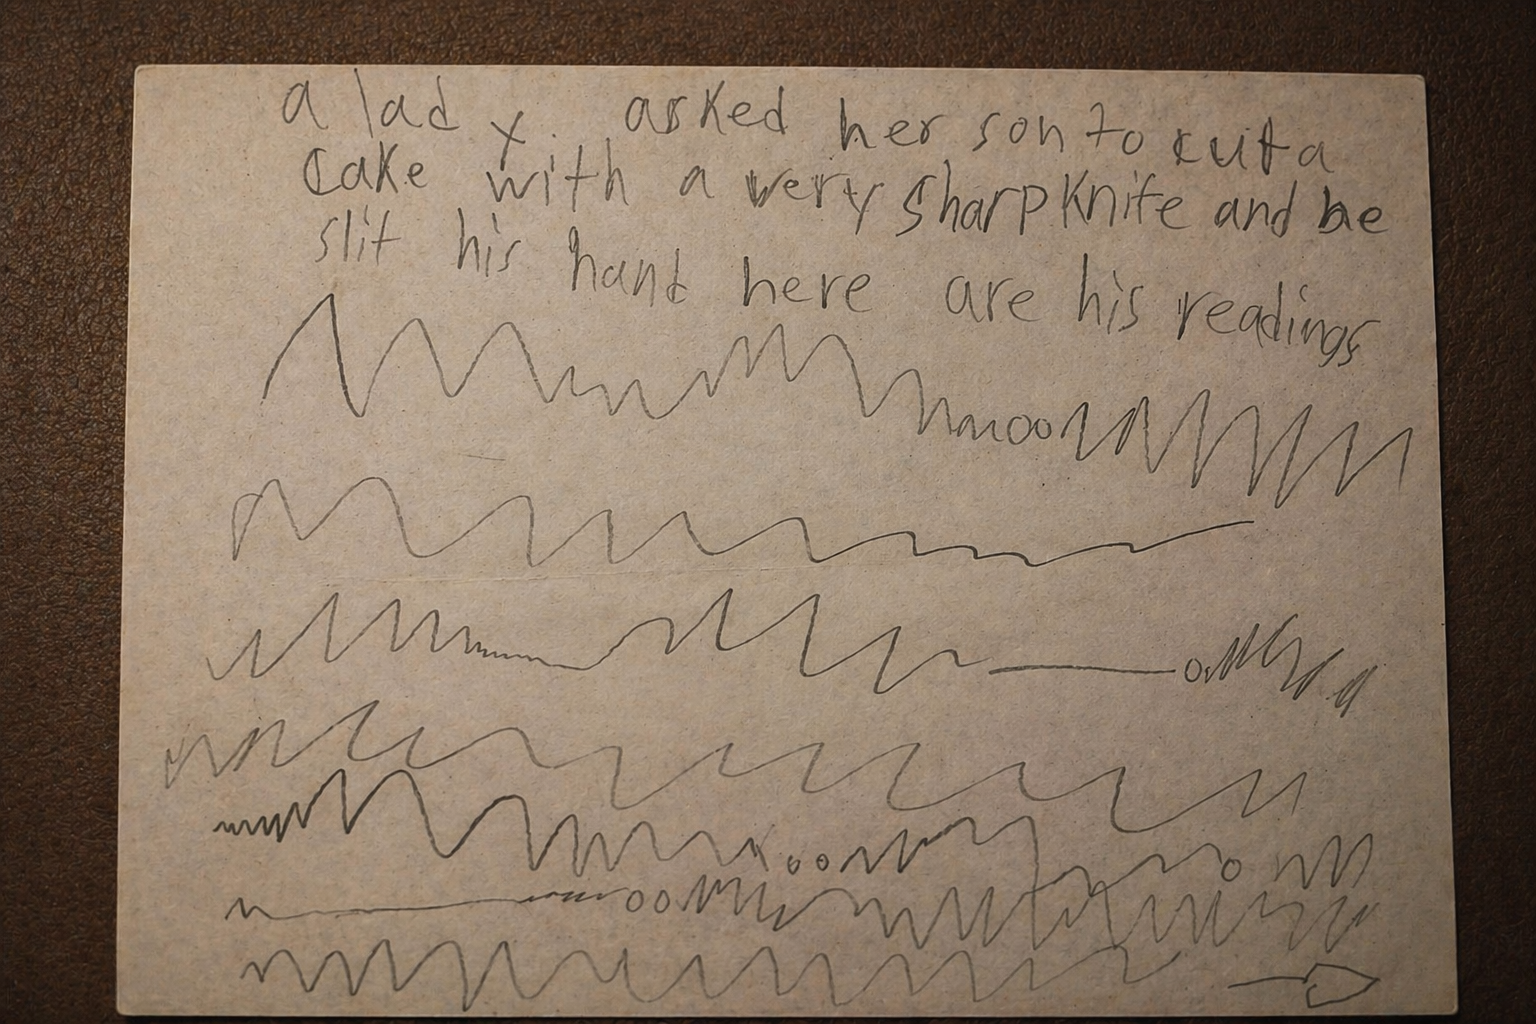 a lady asked her son to cut a
cake with a very sharp knife and he
slit his hand here are his readings